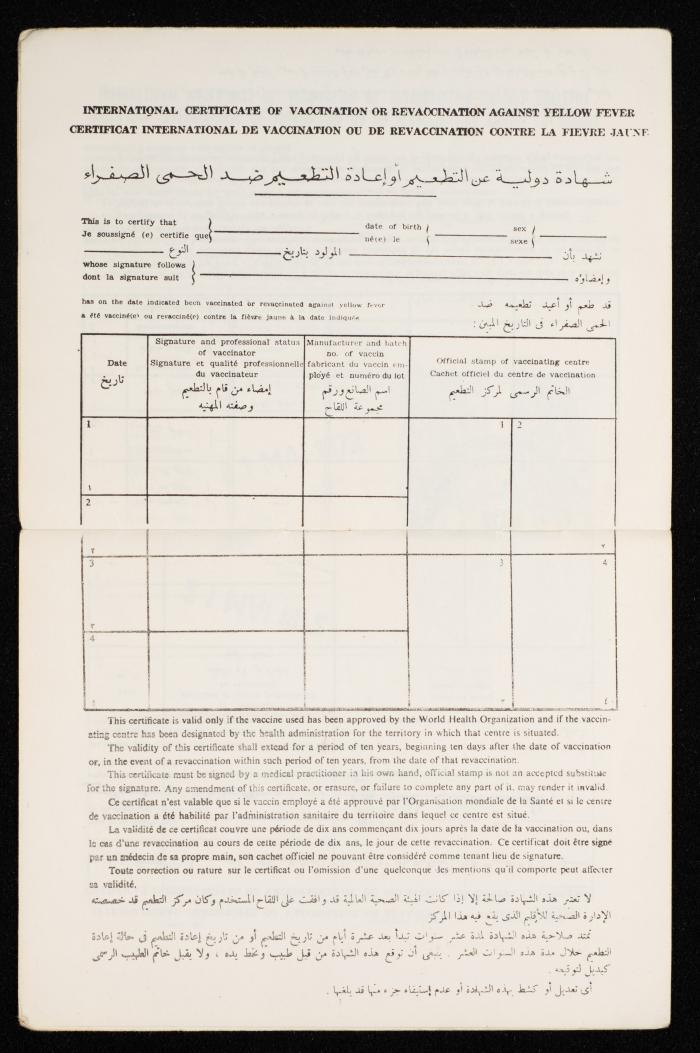 INTERNATIONAL CERTIFICATE OF VACCINATION OR REVACCINATION AGAINST YELLOW FEVER
CERTIFICAT INTERNATIONAL DE VACCINATION OU DE REVACCINATION CONTRE LA FIEVRE JAUNE
شهادة دولية عن التطعيم أو إعادة التطعيم ضد الحمى الصفراء
This is to certify that date of birth sex
Je soussigné (e) certifie que né(e) le sexe
نشهد بأن المولود بتاريخ النوع
whose signature follows
dont la signature suit
وإمضاؤه
has on the date indicated been vaccinated or revaccinated against yellow fever
a été vacciné(e) ou revacciné(e) contre la fièvre jaune à la date indiquée
قد طعم أو أعيد تطعيمه ضد
الحمى الصفراء فى التاريخ المبين :
Date
تاريخ
Signature and professional status
of vaccinator
Signature et qualité professionnelle
du vaccinateur
إمضاء من قام بالتطعيم
وصفته المهنيه
Manufacturer and batch
no. of vaccin
fabricant du vaccin em-
ployé et numéro du lot
اسم الصانع ورقم
مجموعة اللقاح
Official stamp of vaccinating centre
Cachet officiel du centre de vaccination
الخاتم الرسمى لمركز التطعيم
1 1 2
١
2
٢ ٢
3 3 4
٣
4
٤ ٣ ٤
This certificate is valid only if the vaccine used has been approved by the World Health Organization and if the vaccin-
ating centre has been designated by the health administration for the territory in which that centre is situated.
The validity of this certificate shall extend for a period of ten years, beginning ten days after the date of vaccination
or, in the event of a revaccination within such period of ten years, from the date of that revaccination.
This certificate must be signed by a medical practitioner in his own hand, official stamp is not an accepted substitute
for the signature. Any amendment of this certificate, or erasure, or failure to complete any part of it, may render it invalid.
Ce certificat n'est valable que si le vaccin employé a été approuvé par l'Organisation mondiale de la Santé et si le centre
de vaccination a été habilité par l'administration sanitaire du territoire dans lequel ce centre est situé.
La validité de ce certificat couvre une période de dix ans commençant dix jours après la date de la vaccination ou, dans
le cas d'une revaccination au cours de cette période de dix ans, le jour de cette revaccination. Ce certificat doit être signé
par un médecin de sa propre main, son cachet officiel ne pouvant être considéré comme tenant lieu de signature.
Toute correction ou rature sur le certificat ou l'omission d'une quelconque des mentions qu'il comporte peut affecter
sa validité.
لا تعتبر هذه الشهادة صالحة إلا إذا كانت الهيئة الصحية العالمية قد وافقت على اللقاح المستخدم وكان مركز التطعيم قد خصصته
الإدارة الصحية للأقليم الذى يقع فيه هذا المركز
تمتد صلاحية هذه الشهادة لمدة عشر سنوات تبدأ بعد عشرة أيام من تاريخ التطعيم أو من تاريخ إعادة التطعيم فى حالة إعادة
التطعيم خلال مدة هذه السنوات العشر . ينبغى أن توقع هذه الشهادة من قبل طبيب وبخط يده ، ولا يقبل خاتم الطبيب الرسمى
كبديل لتوقيعه .
أى تعديل أو كشط بهذه الشهادة أو عدم إستيفاء جزء منها قد يلغيها .